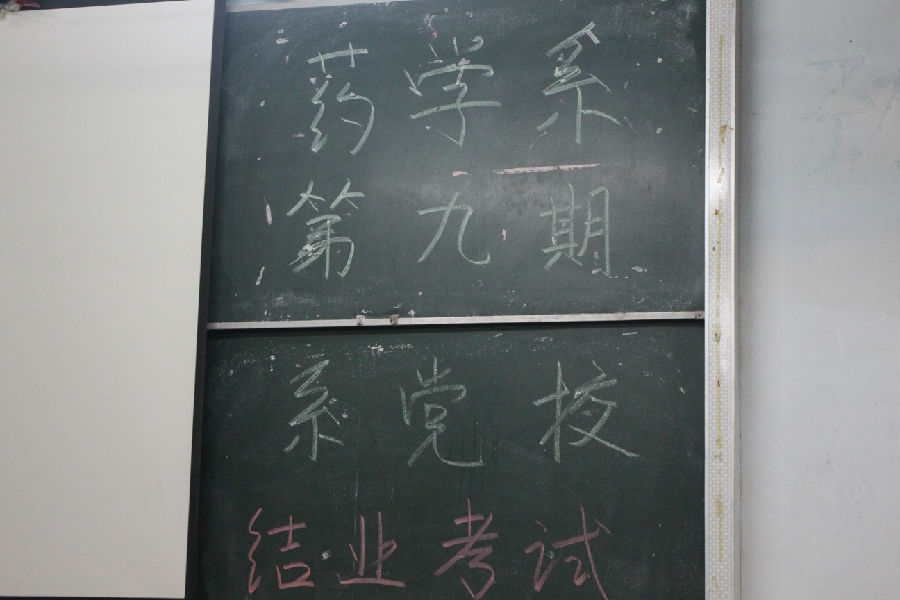 药学系
第九期
系党校
结业考试